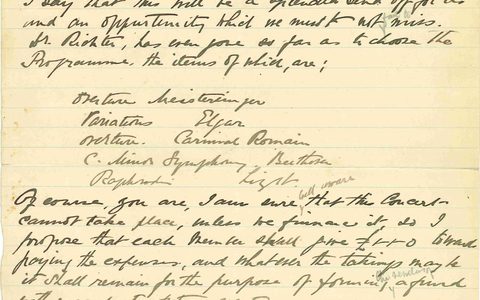 I say that this will be a splendid send off for us
and an oppurtunity which we must not miss.
Dr. Richter, has even gone so far as to choose the
Programme. the items of which, are;
Overture Meistersinger
Variations Elgar
Overture. Carnival Romain
C. Minor Symphony. Beethoven
Raphsodie Liszt
well aware
Of course, you are, I am sure that this Concert
cannot take place, unless we finance it, so I
propose that each Member shall give £1-1-0 toward
paying the expenses, and whatever the takings may be
it shall remain for the purpose of forming, a fund